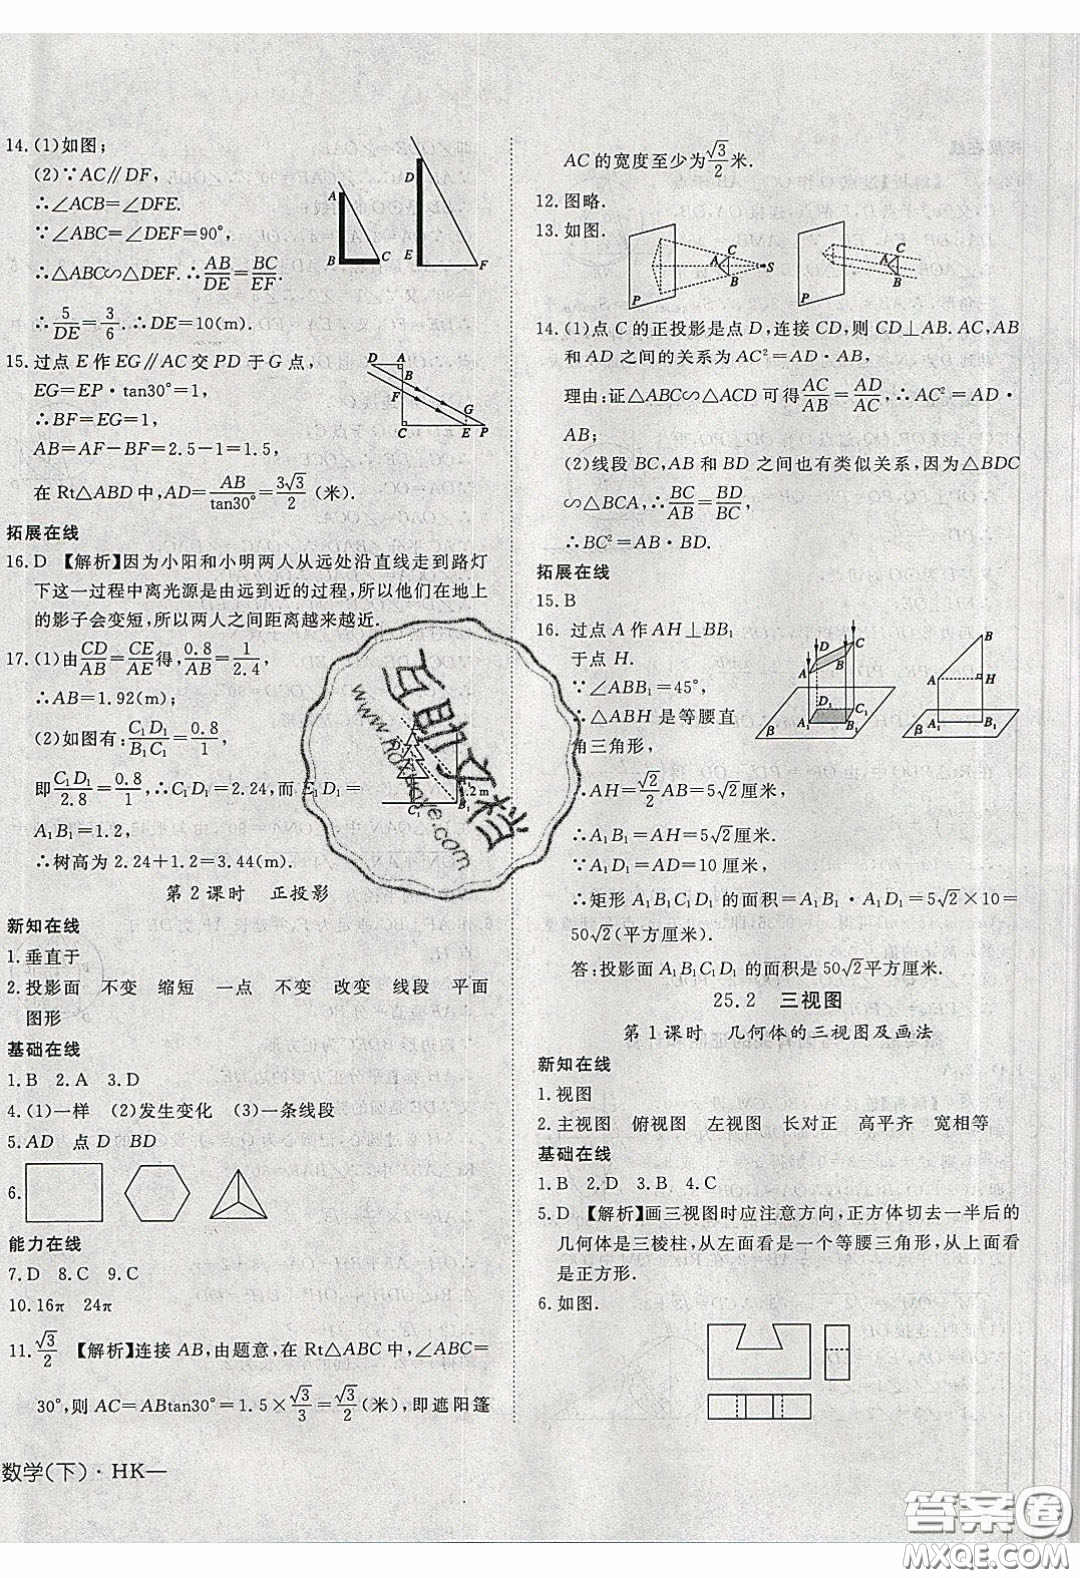 14.(1)如图；
(2)∵AC∥DF,
∴∠ACB=∠DFE.
∵∠ABC=∠DEF=90°,
∴△ABC∽△DEF.∴AB/DE=BC/EF.
∴5/DE=3/6.∴DE=10(m).
A
B
C
D
E
F
15.过点 E 作 EG∥AC 交 PD 于 G 点,
EG=EP·tan30°=1,
∴BF=EG=1.
AB=AF-BF=2.5-1=1.5,
在 Rt△ABD 中,AD=AB/tan30°=3√3/2(米).
D A
B
F
G
C E P
拓展在线
16.D 【解析】因为小阳和小明两人从远处沿直线走到路灯
下这一过程中离光源是由远到近的过程,所以他们在地上
的影子会变短,所以两人之间距离越来越近.
17.(1)由CD/AB=CE/AE得,0.8/AB=1/2.4,
∴AB=1.92(m);
(2)如图有:C₁D₁/B₁C₁=0.8/1,
即C₁D₁/2.8=0.8/1,∴C₁D₁=2.24,而 E₁D₁=
A₁B₁=1.2,
∴树高为 2.24+1.2=3.44(m).
第 2 课时 正投影
新知在线
1.垂直于
2.投影面 不变 缩短 一点 不变 改变 线段 平面
图形
基础在线
1.B 2.A 3.D
4.(1)一样 (2)发生变化 (3)一条线段
5.AD 点 D BD
6.
能力在线
7.D 8.C 9.C
10.16π 24π
11.√3/2 【解析】连接 AB,由题意,在 Rt△ABC 中,∠ABC=
30°,则 AC=ABtan30°=1.5×√3/3=√3/2(米),即遮阳篷
数学(下)·HK—
AC 的宽度至少为√3/2米.
12.图略.
13.如图.
P
C
A
B
S
P
C
A
B
14.(1)点 C 的正投影是点 D,连接 CD,则 CD⊥AB.AC,AB
和 AD 之间的关系为 AC²=AD·AB,
理由:证△ABC∽△ACD 可得AC/AB=AD/AC,∴AC²=AD·
AB;
(2)线段 BC,AB 和 BD 之间也有类似关系,因为△BDC
∽△BCA,∴BC/AB=BD/BC,
∴BC²=AB·BD.
拓展在线
15.B
16.过点 A 作 AH⊥BB₁
于点 H.
∵∠ABB₁=45°,
∴△ABH 是等腰直
角三角形,
∴AH=√2/2AB=5√2厘米,
∴A₁B₁=AH=5√2厘米.
∵A₁D₁=AD=10 厘米,
∴矩形 A₁B₁C₁D₁ 的面积=A₁B₁·A₁D₁=5√2×10=
50√2(平方厘米).
答:投影面 A₁B₁C₁D₁ 的面积是 50√2平方厘米.
25.2 三视图
第 1 课时 几何体的三视图及画法
新知在线
1.视图
2.主视图 俯视图 左视图 长对正 高平齐 宽相等
基础在线
1.B 2.D 3.B 4.C
5.D 【解析】画三视图时应注意方向,正方体切去一半后的
几何体是三棱柱,从左面看是一个等腰三角形,从上面看
是正方形.
6.如图.
互助文档
www.hozhove.com
答案圈
MXQE.COM